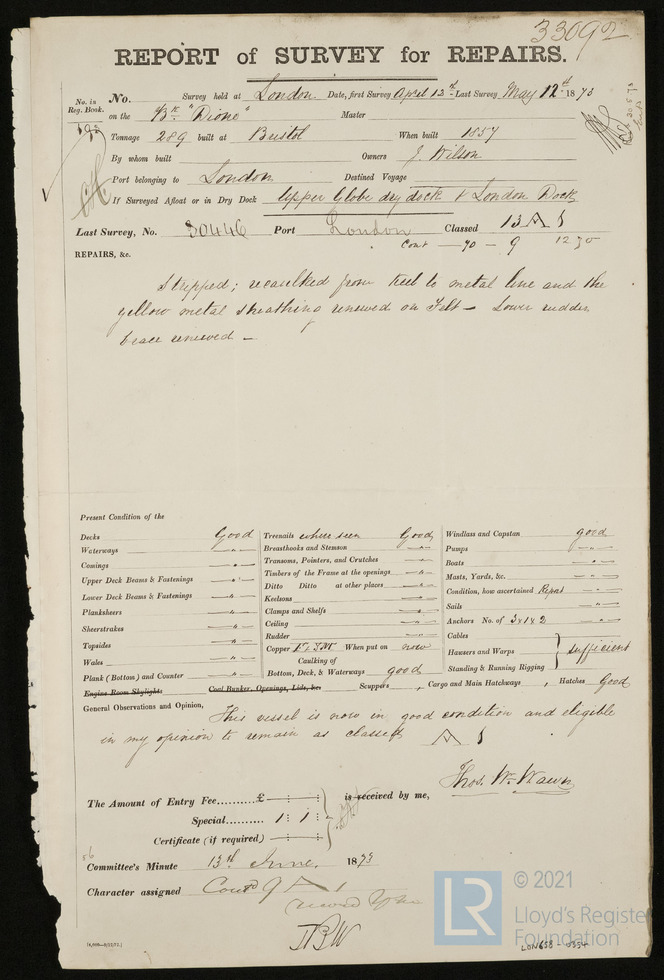 33092
REPORT of SURVEY for REPAIRS.
No. in Reg. Book.
No. Survey held at London Date, first Survey April 12th Last Survey May 12th 1873
192 on the Bk "Dione" Master
Tonnage 289 built at Bristol When built 1857
By whom built Owners J. Wilson
Port belonging to London Destined Voyage
If Surveyed Afloat or in Dry Dock Upper Globe dry dock & London Dock
Last Survey, No. 30446 Port London Classed 13 A 1
Cont 70 - 9 12 70
REPAIRS, &c.
Stripped; recaulked from keel to metal line and the
yellow metal sheathing renewed on Felt - Lower rudder
brace renewed -
Present Condition of the
Decks Good
Waterways "
Comings "
Upper Deck Beams & Fastenings "
Lower Deck Beams & Fastenings "
Planksheers "
Sheerstrakes "
Topsides "
Wales "
Plank (Bottom) and Counter "
Engine Room Skylights Coal Bunker, Openings, Lids, &c.
Treenails where seen Good
Breasthooks and Stemson "
Transoms, Pointers, and Crutches "
Timbers of the Frame at the openings "
Ditto Ditto at other places "
Keelsons "
Clamps and Shelfs "
Ceiling "
Rudder "
Copper F.Y.M. When put on now
Caulking of
Bottom, Deck, & Waterways good
Scuppers , Cargo and Main Hatchways , Hatches Good
Windlass and Capstan good
Pumps "
Boats "
Masts, Yards, &c. "
Condition, how ascertained Report "
Sails "
Anchors No. of 3 x 1 x 2 "
Cables
Hawsers and Warps } sufficient
Standing & Running Rigging
General Observations and Opinion, This vessel is now in good condition and eligible
in my opinion to remain as classed A 1
Thos. Wm. Wawn
The Amount of Entry Fee......... £ : : is received by me,
Special.......... 1 : 1 :
Certificate (if required) : :
Committee's Minute 13th June, 1873
Character assigned Contd 9 A 1
JBW
© 2021
LR
Lloyd's Register
Foundation
LON658-0354